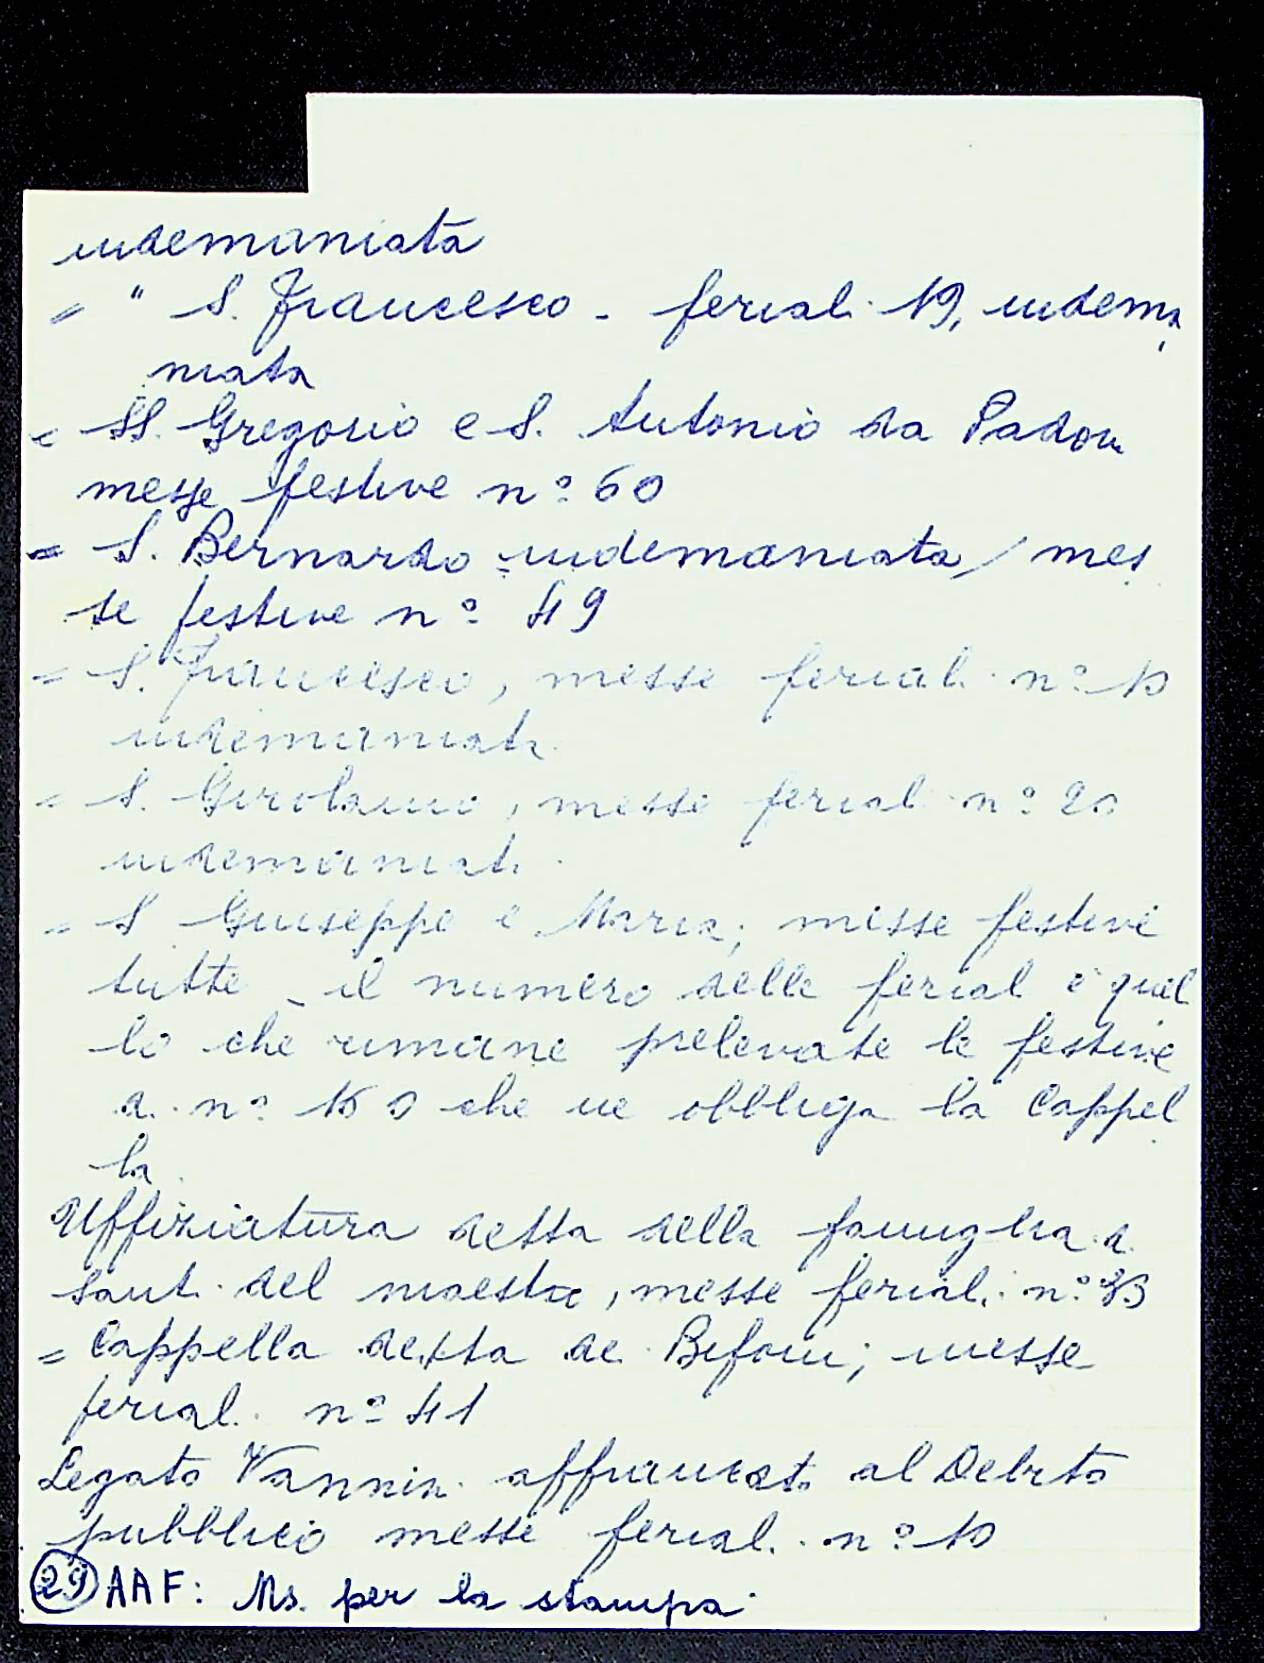 indemaniata
= " S. Francesco - feriali 19, indema
niata
= SS. Gregorio e S. Antonio da Padova
messe festive n° 60
= S. Bernardo - indemaniata / mes
se festive n° 49
= S. Francesco, messe feriali n° 10
indemaniata
= S. Girolamo, messe feriali n° 20
indemaniata
= S Giuseppe e Maria; messe festive
tutte - il numero delle feriali è quel
lo che rimane prelevate le festive
a n° 150 che ne obbliga la Cappel
la
Uffiziatura detta della famiglia di
Santi del maestro, messe feriali n° 33
= Cappella detta de Bifoni; messe
feriali n° 41
Legato Vannini affrancato al Debito
pubblico messe feriali n° 10
29 AAF: Ms. per la stampa